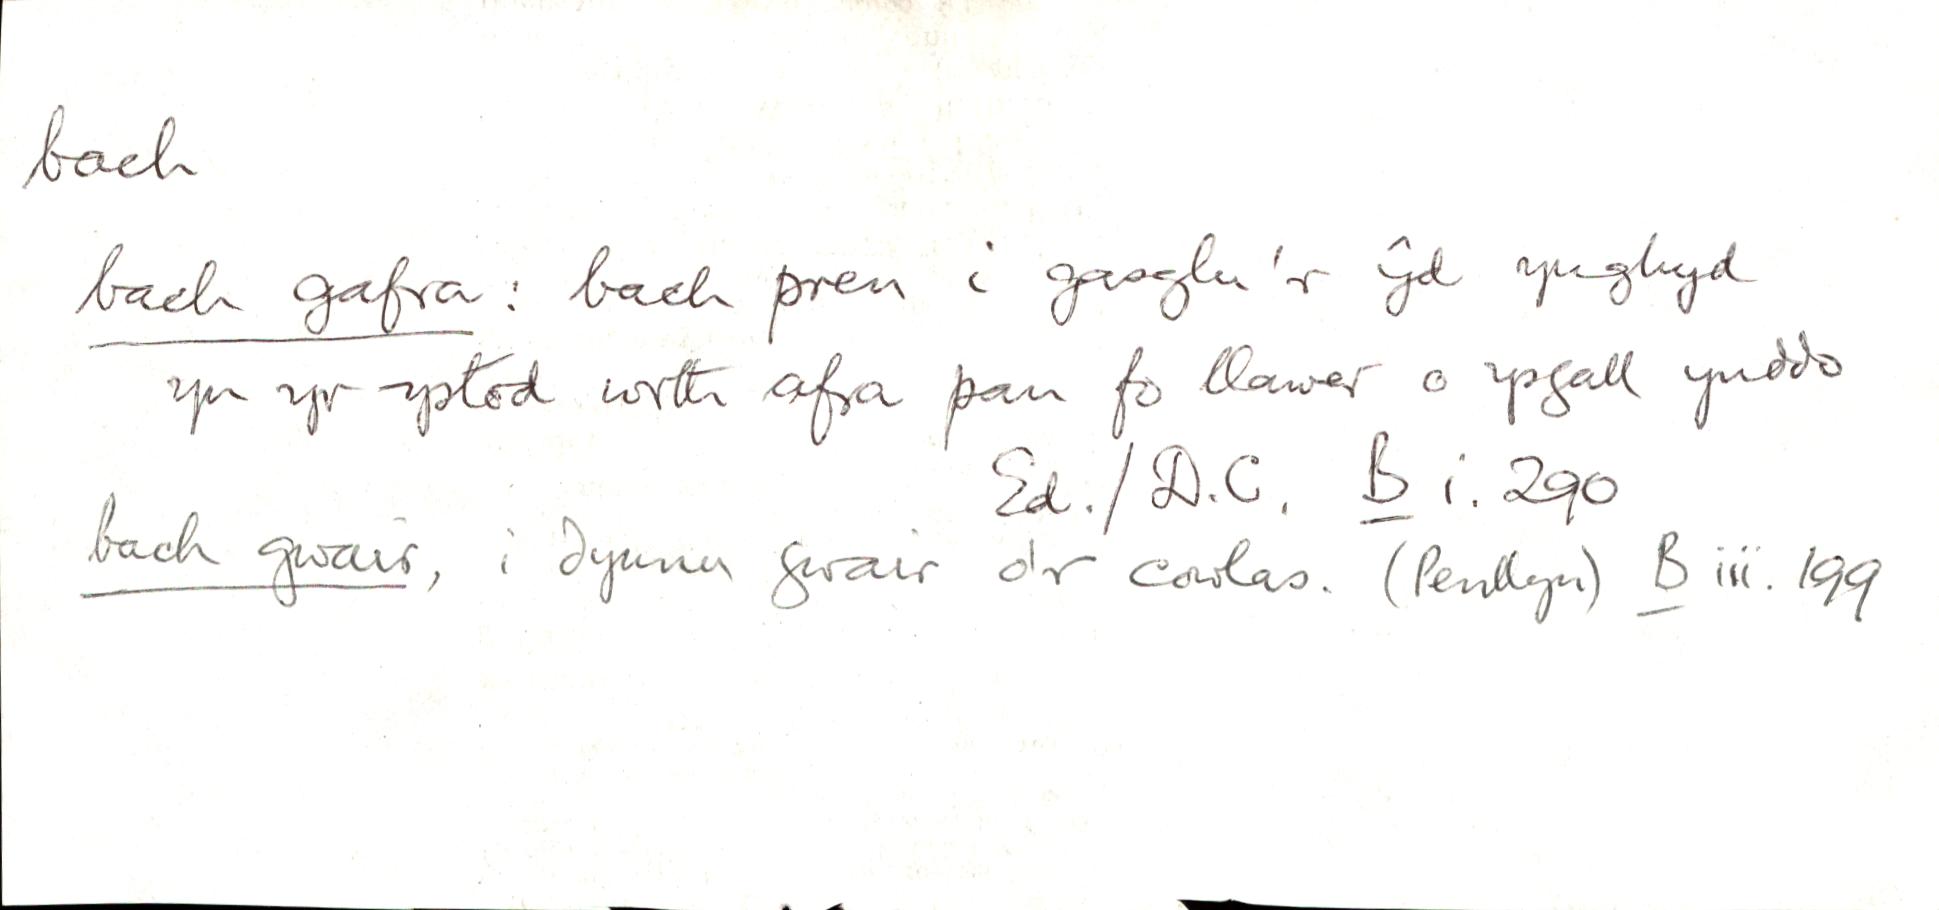 bach
bach gafra: bach pren i gasglu'r ŷd ynghyd
yn yr ystod wrth afra pan fo llawer o ysgall ynddo
Ed./D.C. B i. 290
bach gwair, i dynnu gwair o'r cowlas. (Penllyn) B iii. 199